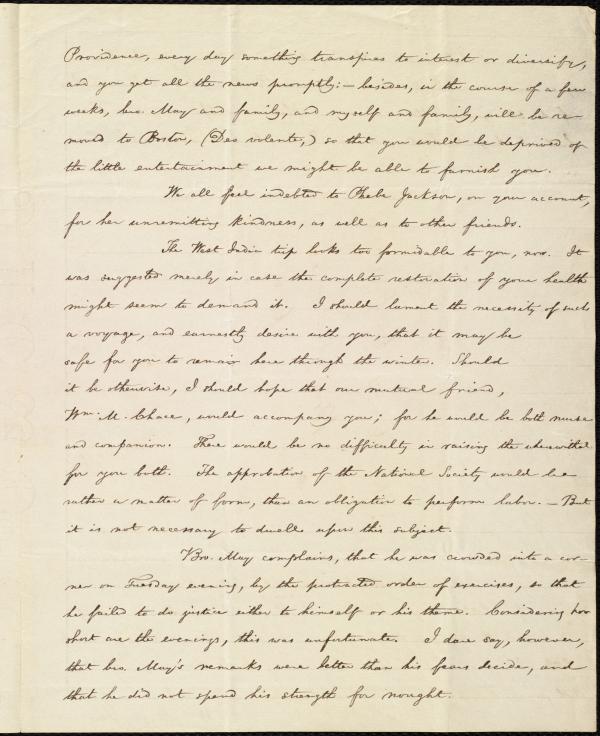 Providence, every day something transpires to interest or diversify,
and you get all the news promptly:— besides, in the course of a few
weeks, bro. May and family, and myself and family, will be re-
moved to Boston, (Deo volente,) so that you would be deprived of
the little entertainment we might be able to furnish you.
We all feel indebted to Phebe Jackson, on your account,
for her unremitting kindness, as well as to other friends.
The West India trip looks too formidable to you, now. It
was suggested merely in case the complete restoration of your health
might seem to demand it. I should lament the necessity of such
a voyage, and earnestly desire with you, that it may be
safe for you to remain here through the winter. Should
it be otherwise, I should hope that our mutual friend,
Wm. M. Chace, would accompany you; for he would be both nurse
and companion. There would be no difficulty in raising the wherewithal
for you both. The approbation of the National Society would be
rather a matter of form, than an obligation to perform labor. — But
it is not necessary to dwell upon this subject.
Bro. May complains, that he was crowded into a cor-
ner on Tuesday evening, by the protracted order of exercises, so that
he failed to do justice either to himself or his theme. Considering how
short are the evenings, this was unfortunate. I dare say, however,
that bro. May's remarks were better than his fears decide, and
that he did not spend his strength for nought.